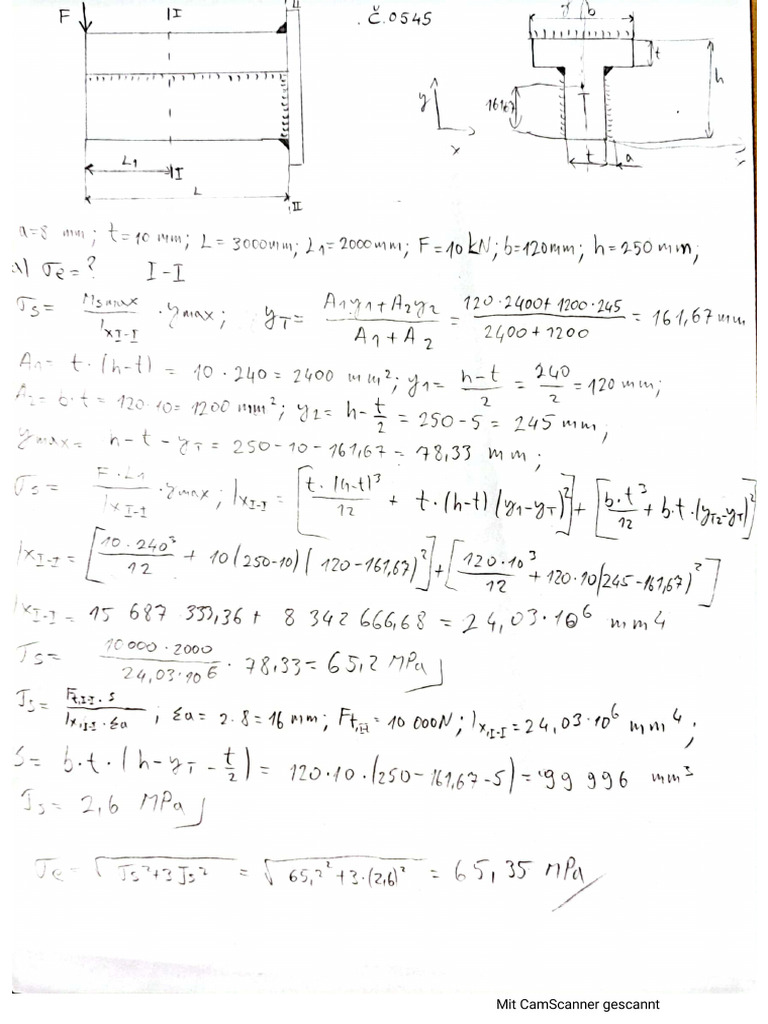 F I II Č.0545 b
t h
y 161,67
x t a
L1 I
L II
a=8 mm; t=10 mm; L=3000mm; L1=2000mm; F=10kN; b=120mm; h=250 mm;
a) σe=? I-I
σs= Msmax/IxI-I · ymax; yT= A1y1+A2y2/A1+A2 = 120·2400+1200·245/2400+1200 = 161,67 mm
A1= t·(h-t) = 10·240=2400 mm²; y1= h-t/2 = 240/2 = 120 mm;
A2= b·t = 120·10= 1200 mm²; y2= h-t/2 = 250-5 = 245 mm;
ymax= h-t-yT = 250-10-161,67 = 78,33 mm;
σs= F·L1/IxI-I · ymax; IxI-I = [t·(h-t)³/12 + t·(h-t)(y1-yT)²]+[b·t³/12 + b·t·(yT2-yT)²]
IxI-I = [10·240³/12 + 10(250-10)(120-161,67)²]+[120·10³/12 +120·10(245-161,67)²]
IxI-I = 15 687 333,36 + 8 342 666,68 = 24,03·10⁶ mm4
σs= 10000·2000/24,03·10 6 · 78,33= 65,2 MPa
τs= Ft,I-I·s/Ix,I-I·Σa ; Σa= 2·8=16 mm; Ft,II= 10 000N; Ix,I-I=24,03·10⁶ mm⁴;
S= b·t·(h-yT-t/2) = 120·10·(250-161,67-5) = 99 996 mm³
τs= 2,6 MPa
σe= √σs²+3τs² = √65,2²+3·(2,6)² = 65,35 MPa
Mit CamScanner gescannt